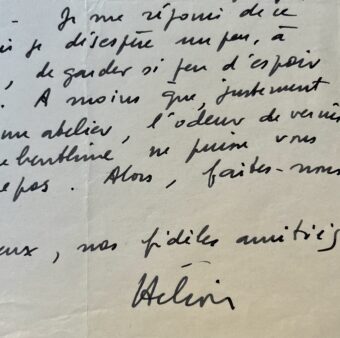 - Je me réjouis de ce
je désespère un peu, à
, de garder si peu d'espoir
. A moins que, justement
un atelier, l'odeur de vernis
benthine, ne puisse vous
epas. Alors, faites-nous
eux, nos fidèles amitiés
Hélion